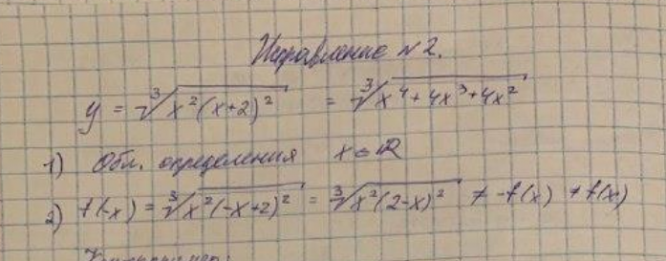 Исправление №2.
y = ∛(x²(x+2)²) = ∛(x⁴+4x³+4x²)
1) Обл. определения x∈R
2) f(-x) = ∛(x²(-x+2)²) = ∛(x²(2-x)²) ≠ -f(x) ≠ f(x)